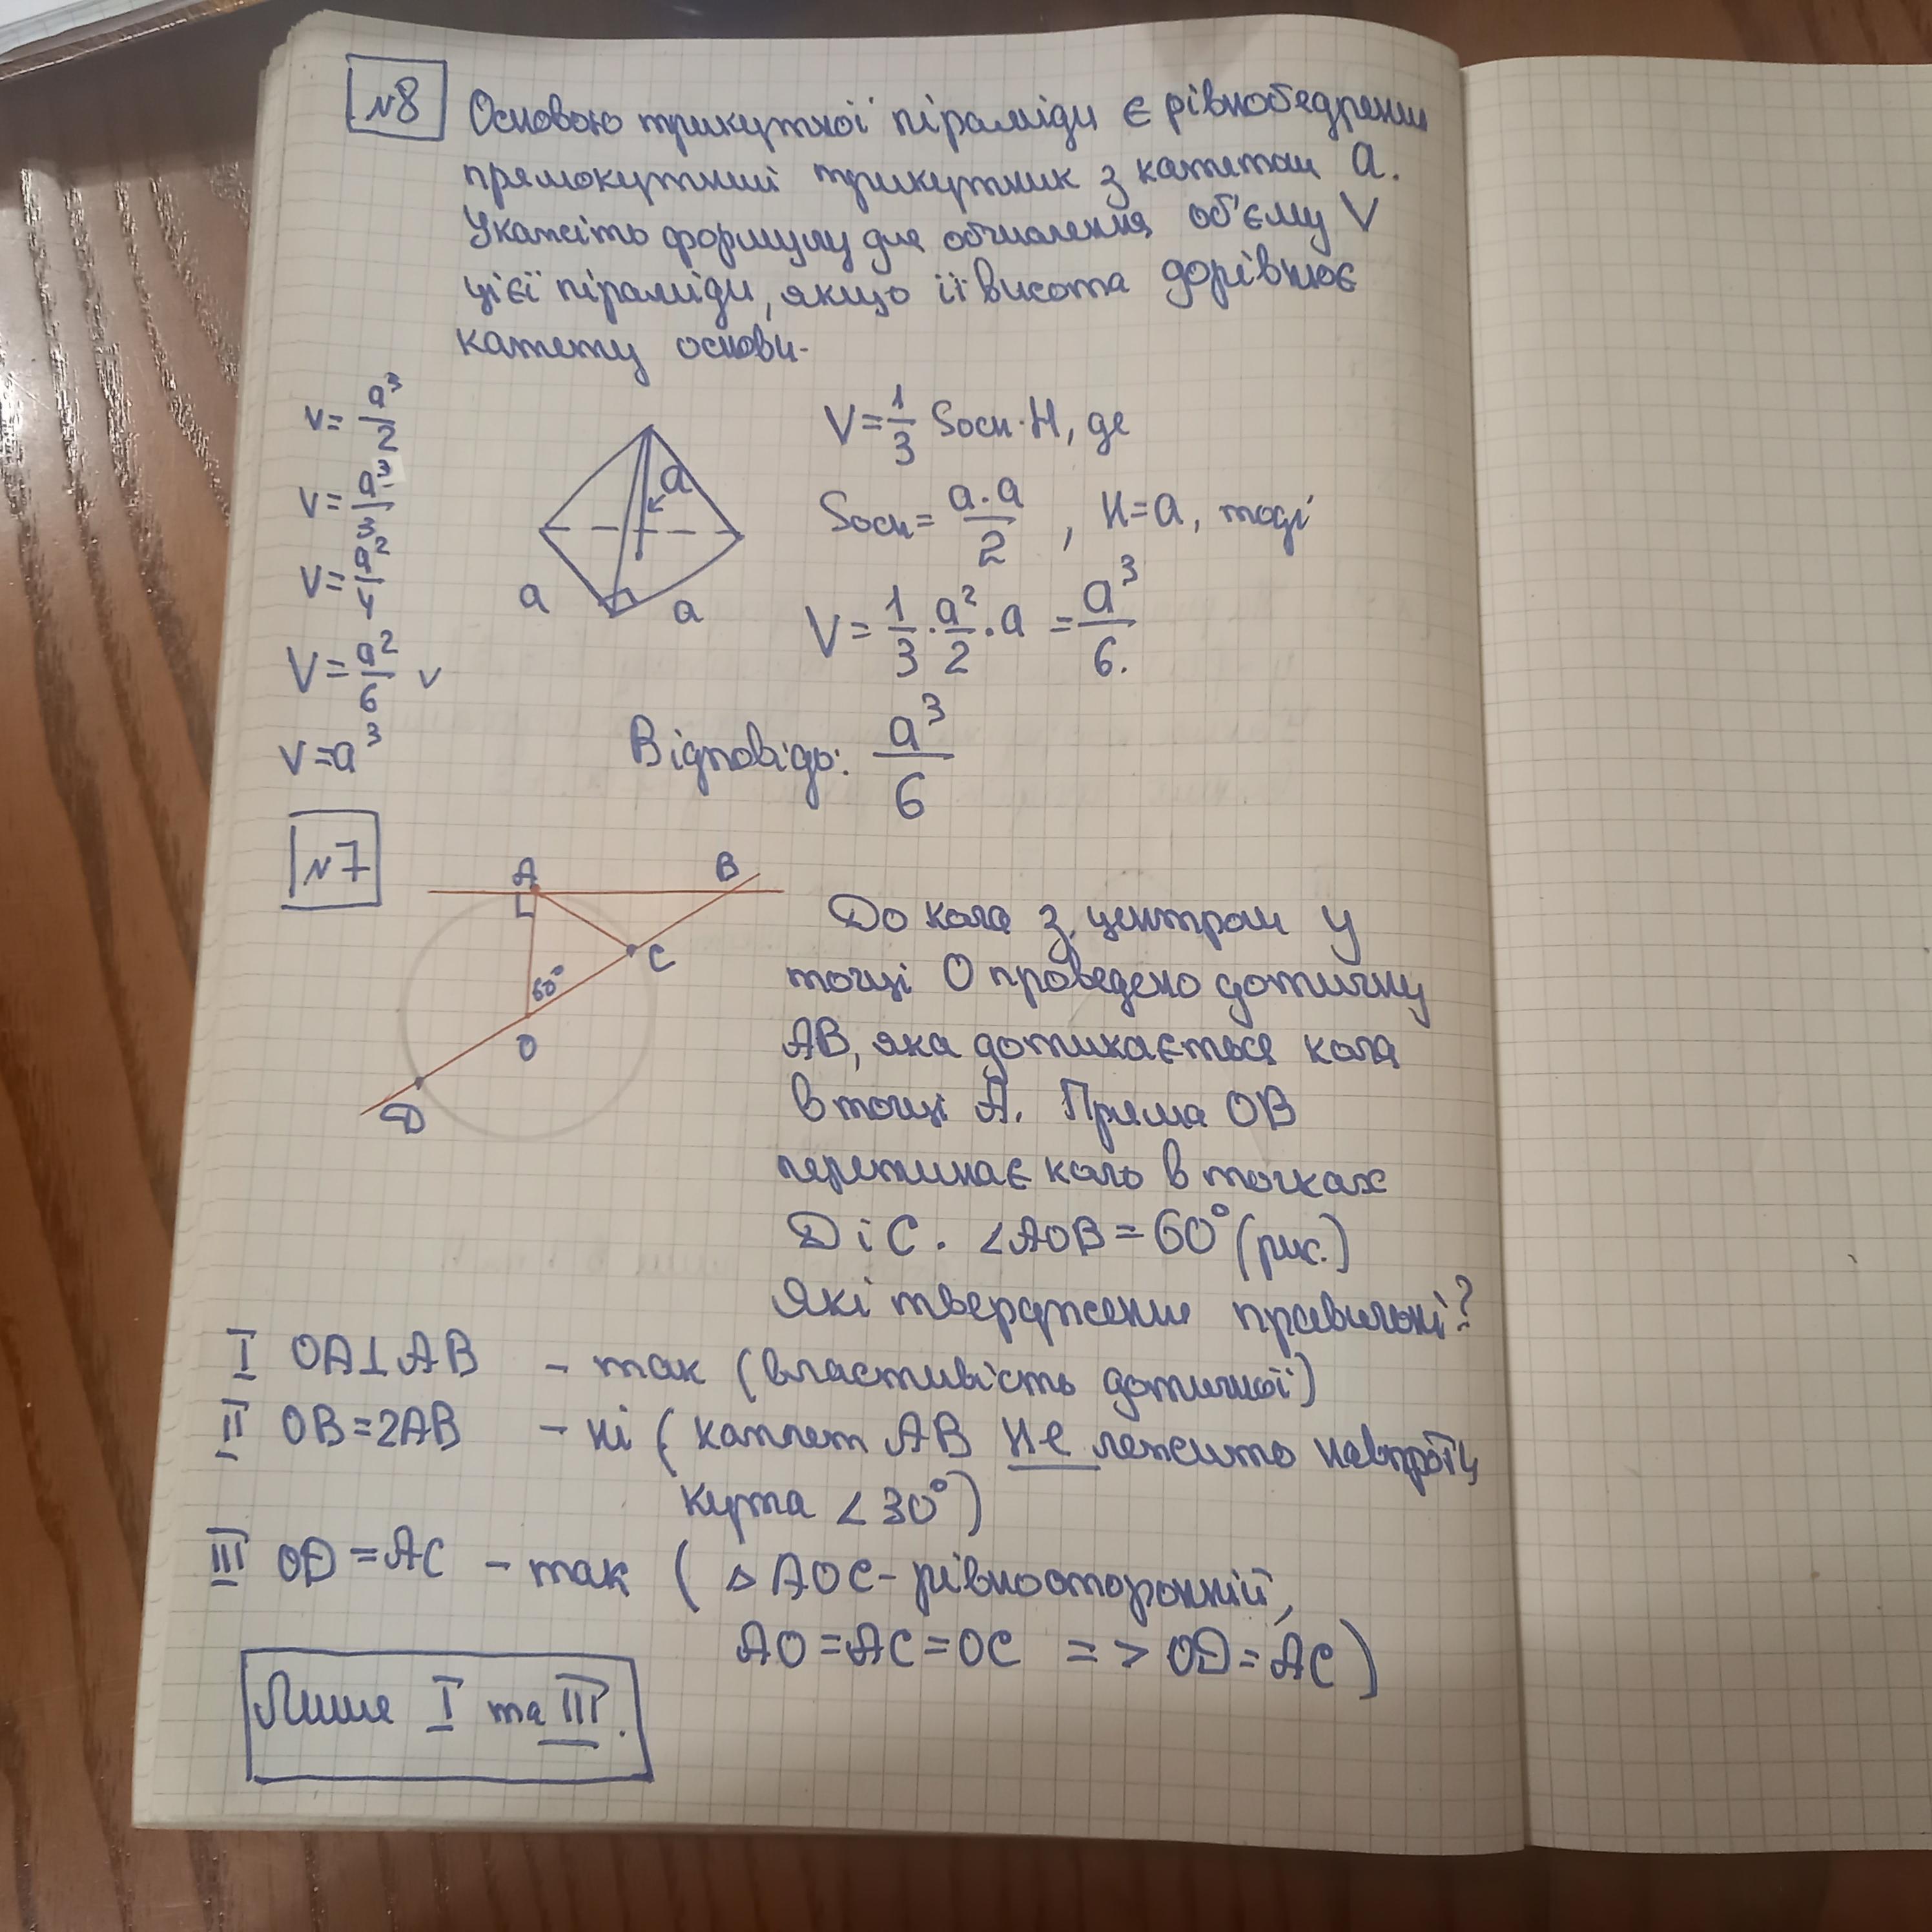 №8
Основою трикутної піраміди є рівнобедрений
прямокутний трикутник з катетом a.
Укажіть формулу для обчислення об'єму V
цієї піраміди, якщо її висота дорівнює
катету основи.
V = a³/2
V = a³/3
V = a²/4
V = a²/6 v
V = a³
a
a
a
V = 1/3 Sосн·H, де
Sосн = a·a/2, H=a, тоді
V = 1/3 · a²/2 · a = a³/6.
Відповідь: a³/6
№7
A
B
C
60°
O
D
До кола з центром у
точці O проведено дотичну
AB, яка дотикається кола
в точці A. Пряма OB
перетинає коло в точках
D і C. ∠AOB = 60° (рис.)
Які твердження правильні?
I OA⊥AB – так (властивість дотичної)
II OB=2AB – ні (катет AB не лежить навпроти
кута ∠30°)
III OD=AC – так (△AOC – рівносторонній,
AO=AC=OC => OD=AC)
Лише I та III.